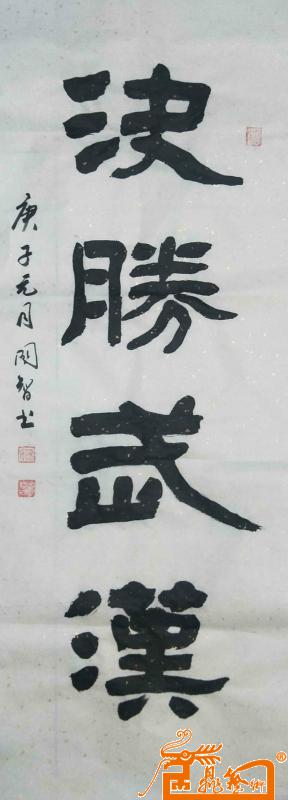 決勝武漢
庚子元月閏智书